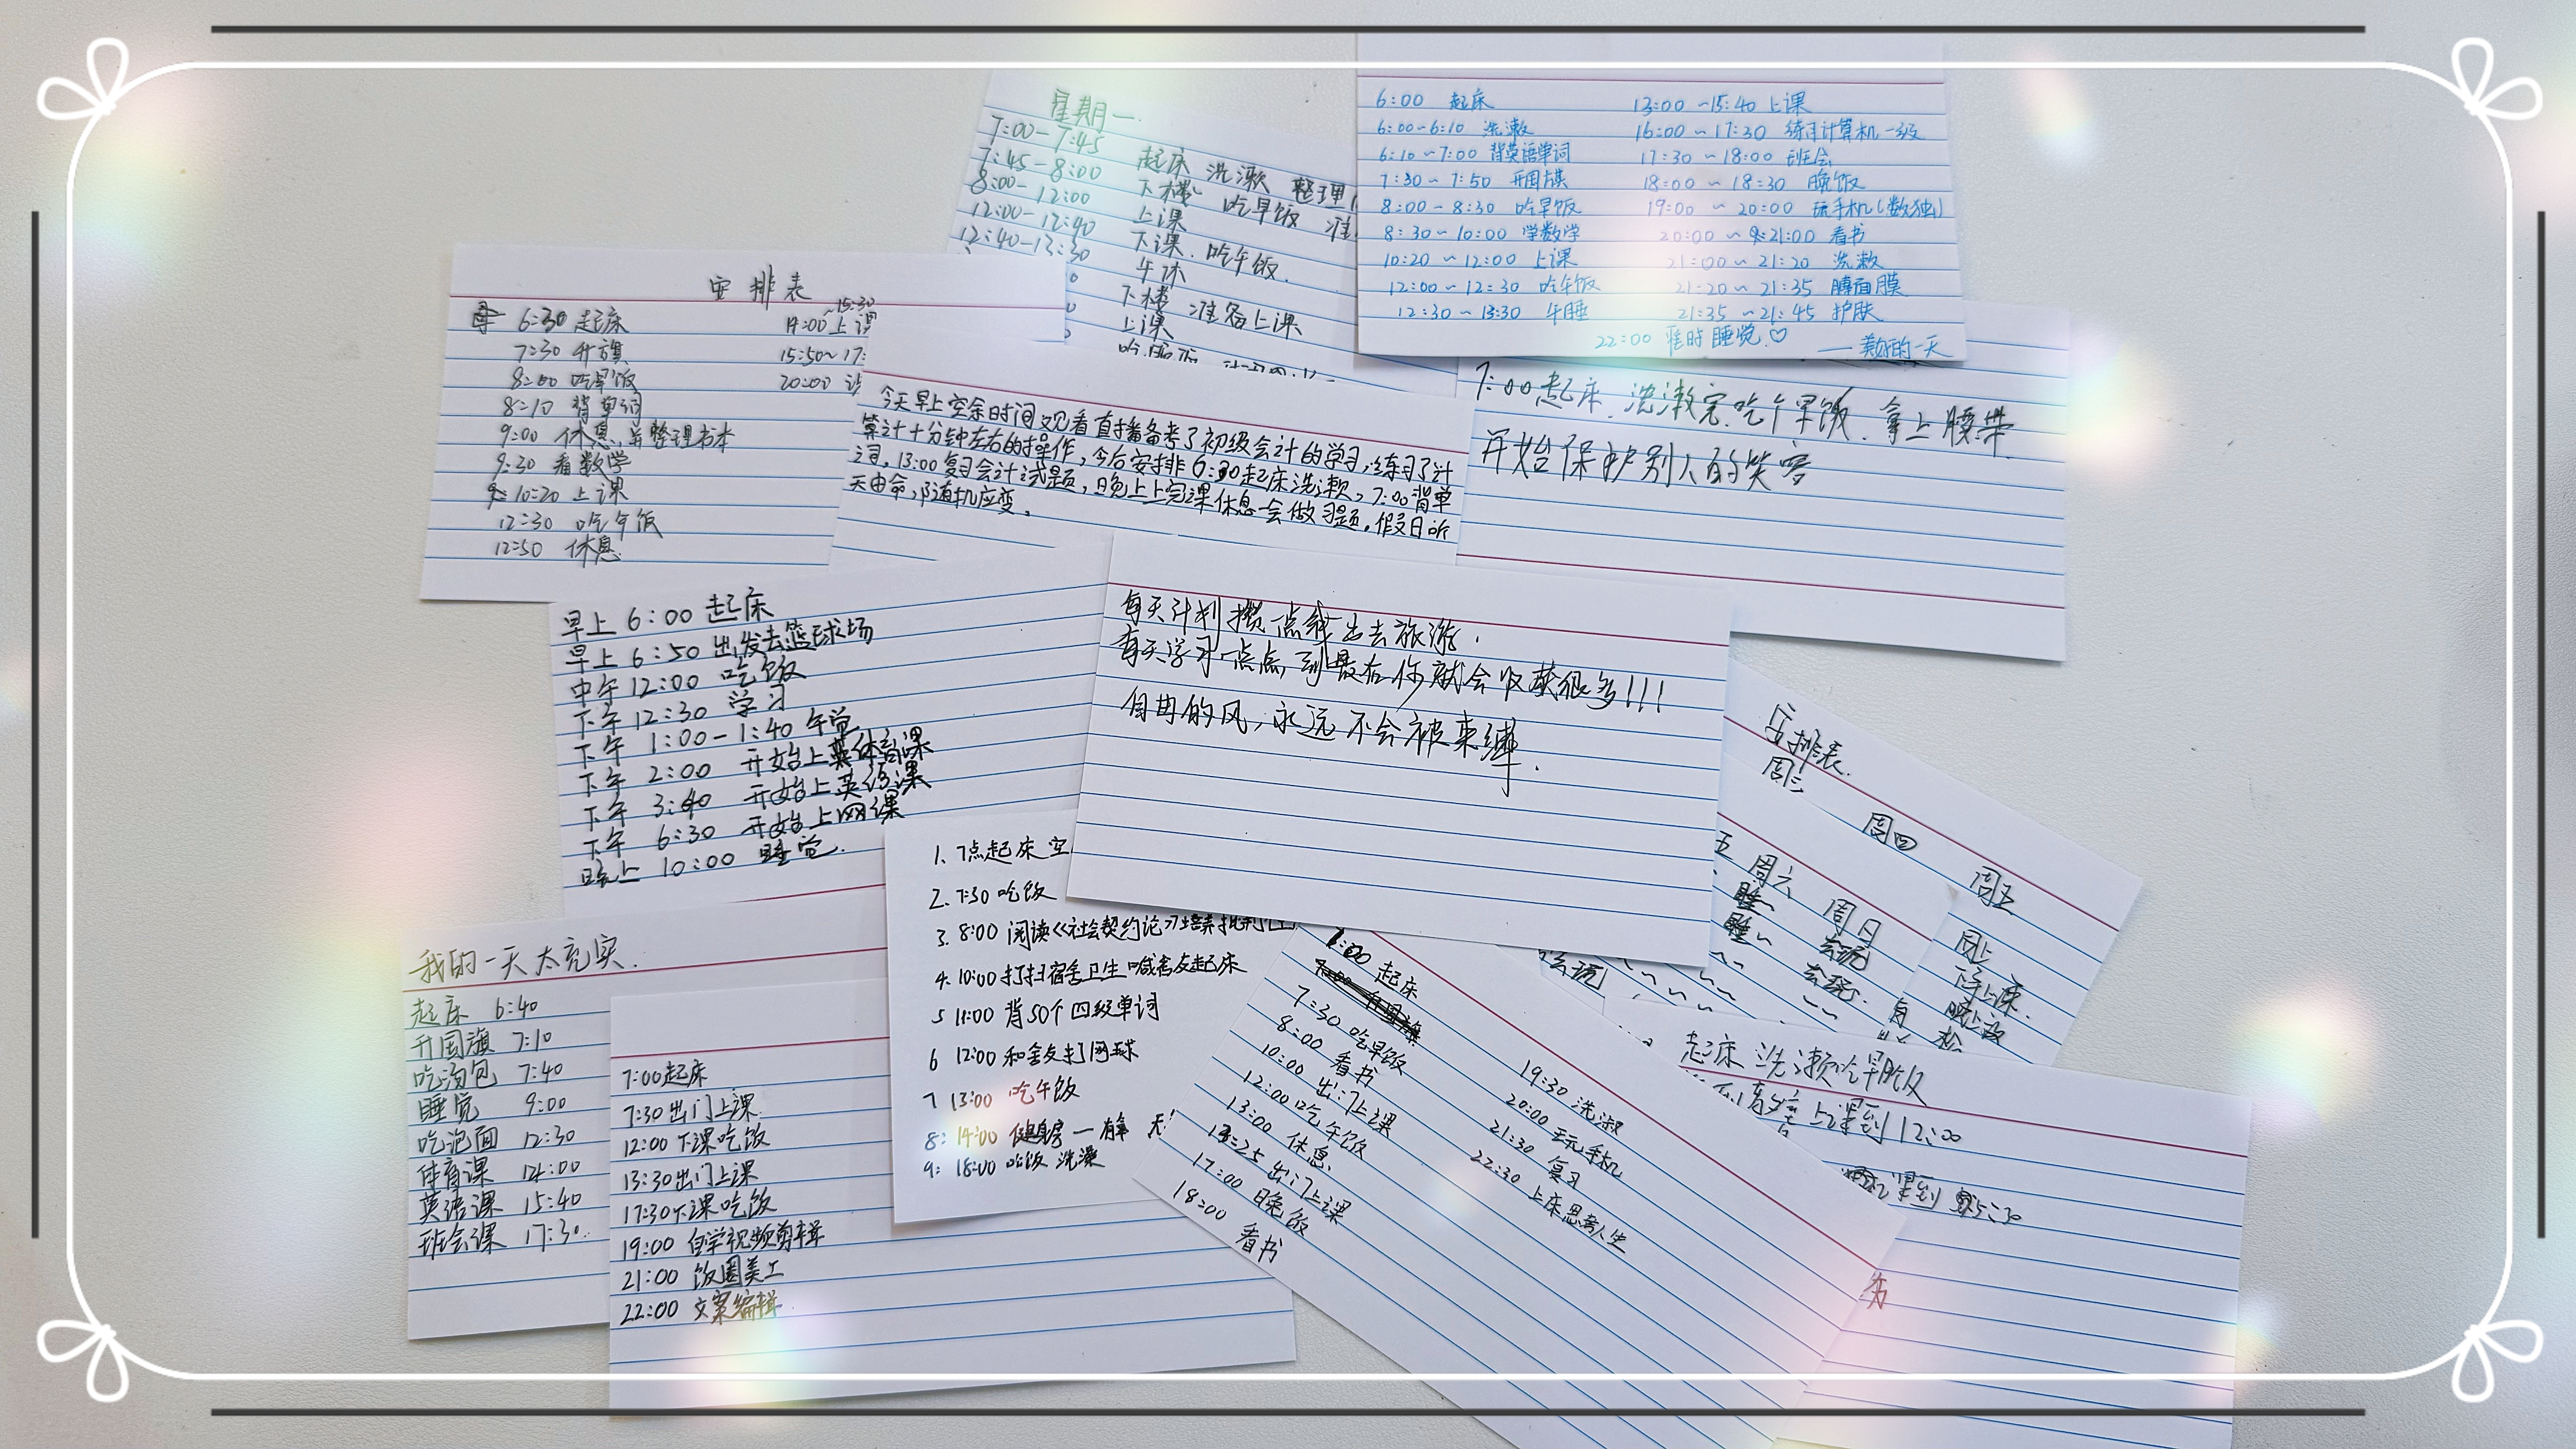 星期一
7:00-7:45 起床 洗漱 整理
7:45-8:00 下楼 吃早饭 准
8:00-12:00 上课
12:00-12:40 下课.吃午饭.
12:40-13:30 午休
下楼 准备上课
上课
6:00 起床
6:00~6:10 洗漱
6:10~7:00 背英语单词
7:30~7:50 升国旗
8:00~8:30 吃早饭
8:30~10:00 学数学
10:20~12:00 上课
12:00~12:30 吃午饭
12:30~13:30 午睡
13:00~15:40 上课
16:00~17:30 练习计算机一级
17:30~18:00 班会
18:00~18:30 晚饭
19:00~20:00 玩手机(数独)
20:00~21:00 看书
21:00~21:20 洗漱
21:20~21:35 敷面膜
21:35~21:45 护肤
22:00 准时睡觉♡
——美好的一天
安排表
6:30 起床
7:30 升旗
8:00 吃早饭
8:10 背单词
9:00 休息,并整理书本
9:30 看数学
10:20 上课
12:30 吃午饭
12:50 休息
14:00~15:30 上课
15:50~17:
20:00
今天早上空余时间观看直播备考了初级会计的学习,练习了计
算计十分钟左右的操作,今后安排6:30起床洗漱,7:00背单
词,13:00复习会计试题,晚上上完课休息一会做习题。假日听
天由命,随机应变。
7:00起床.洗漱完.吃个早饭.拿上腰带
开始保护别人的笑容
早上 6:00 起床
早上 6:50 出发去篮球场
中午 12:00 吃饭
下午 12:30 学习
下午 1:00-1:40 午觉
下午 2:00 开始上体育课
下午 3:40 开始上英语课
下午 6:30 开始上网课
晚上 10:00 睡觉.
每天计划攒一点钱出去旅游.
每天学习一点点,到最后你就会收获很多!!!
自由的风,永远不会被束缚.
安排表.
周三
周四
周五
五 周六 周日
睡~ 去玩
睡~ 去玩.
去玩
周上
我的一天太充实.
起床 6:40
升国旗 7:10
吃汤包 7:40
睡觉 9:00
吃泡面 12:30
体育课 14:00
英语课 15:40
班会课 17:30.
7:00起床
7:30出门上课
12:00下课吃饭
13:30出门上课
17:30下课吃饭
19:00 自学视频剪辑
21:00 饭圈美工
22:00 文案编辑
1. 7点起床 空
2. 7:30 吃饭
3. 8:00 阅读《社会契约论》培养批判
4. 10:00 打扫宿舍卫生 喊舍友起床
5 11:00 背50个四级单词
6 12:00 和舍友打网球
7 13:00 吃午饭
8: 14:00 健身房
9: 18:00 吃饭 洗澡
起床
7:30 吃早饭
8:00 看书
10:00 出门上课
12:00 吃午饭
13:00 休息
13:25 出门上课
17:00 晚饭
18:00 看书
19:30 洗漱
20:00 玩手机
21:30 复习
22:30 上床思考人生
起床 洗漱吃早饭
上课到12:00
课到